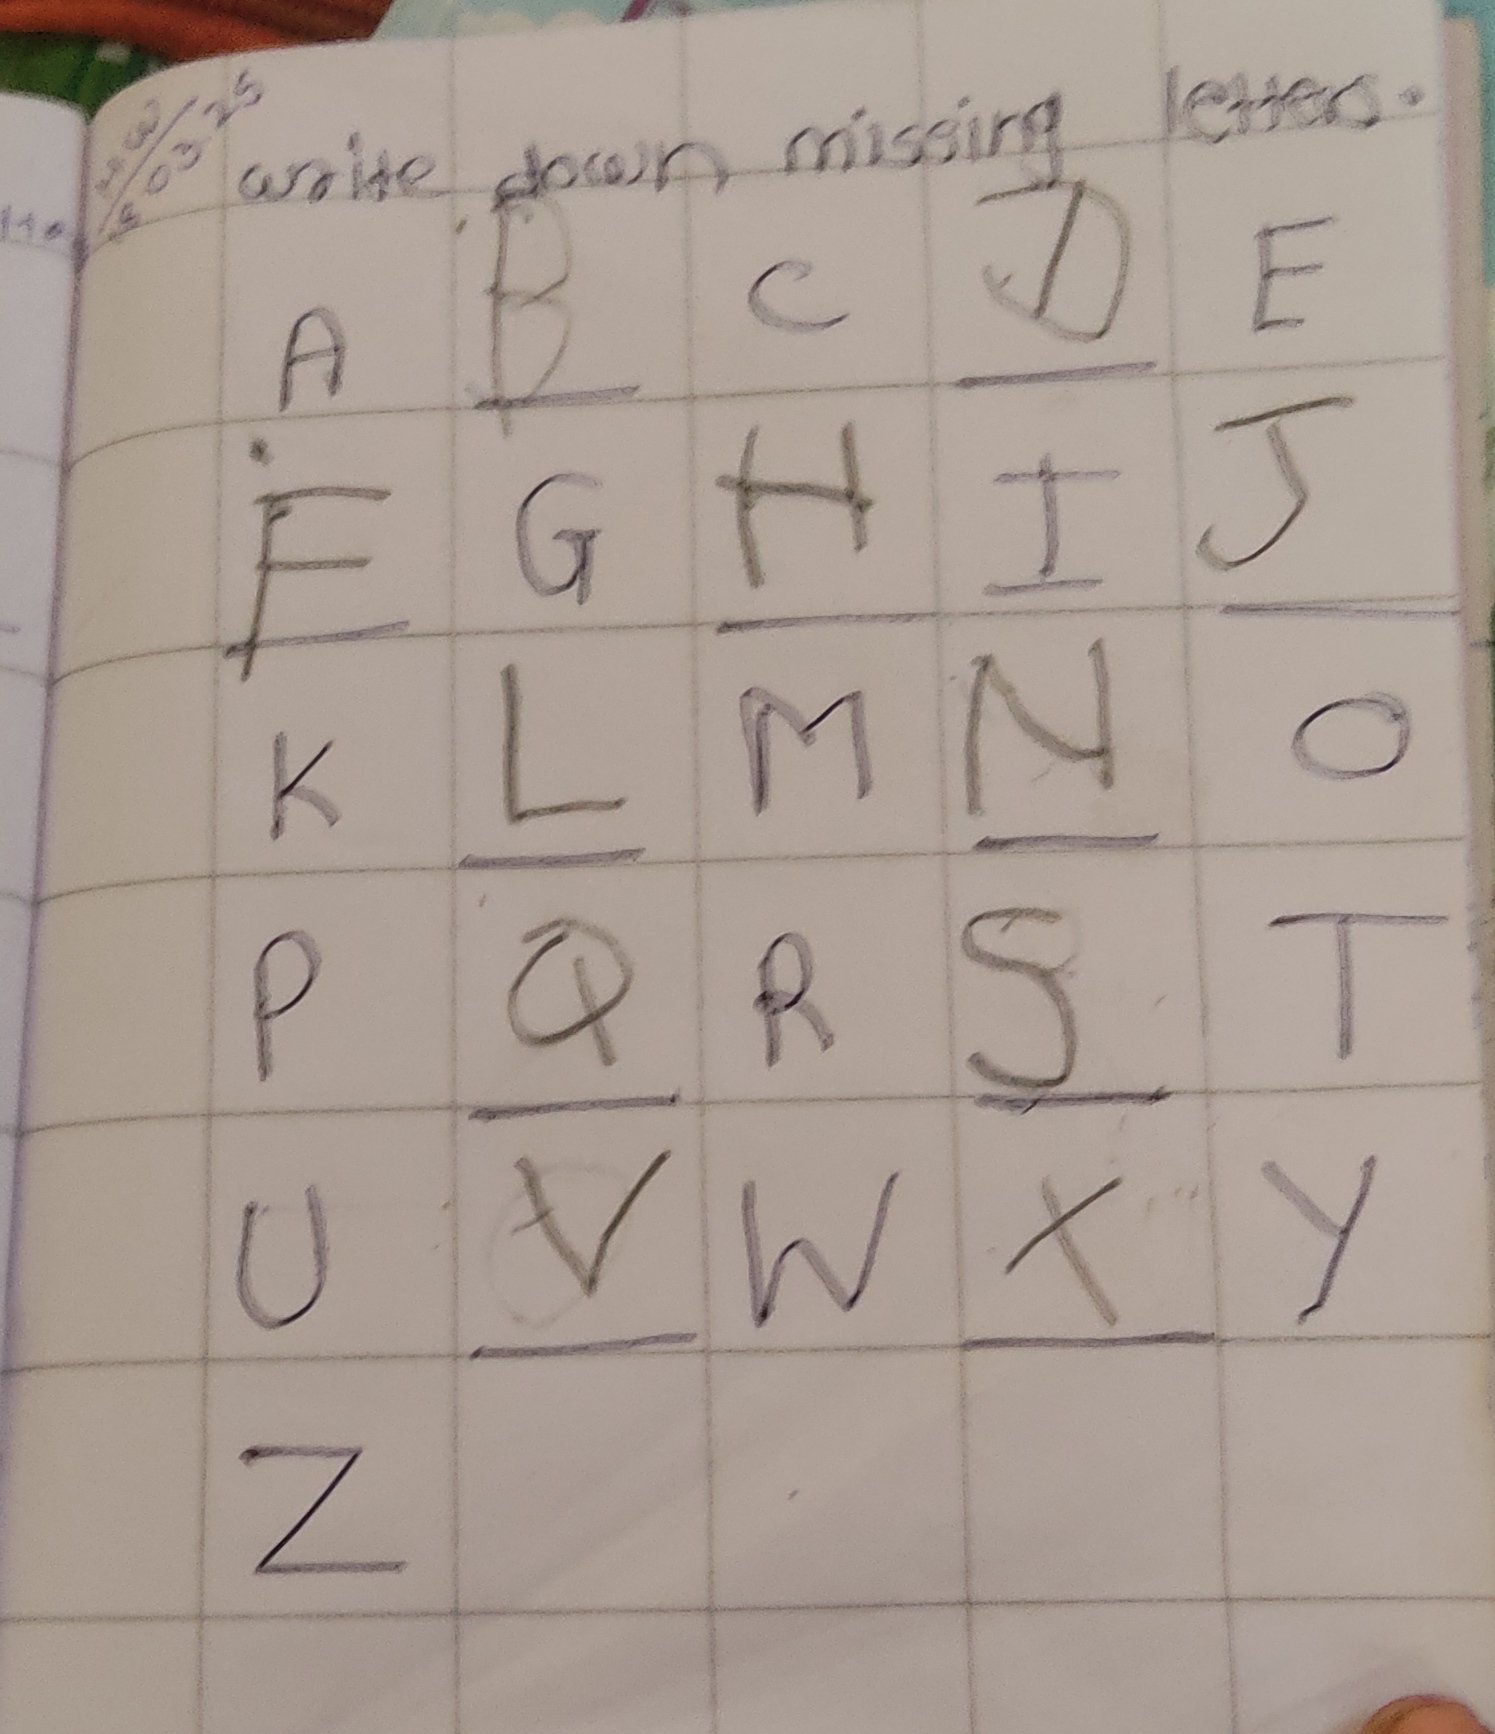 write down missing letters.
A B C D E
F G H I J
K L M N O
P Q R S T
U V W X Y
Z